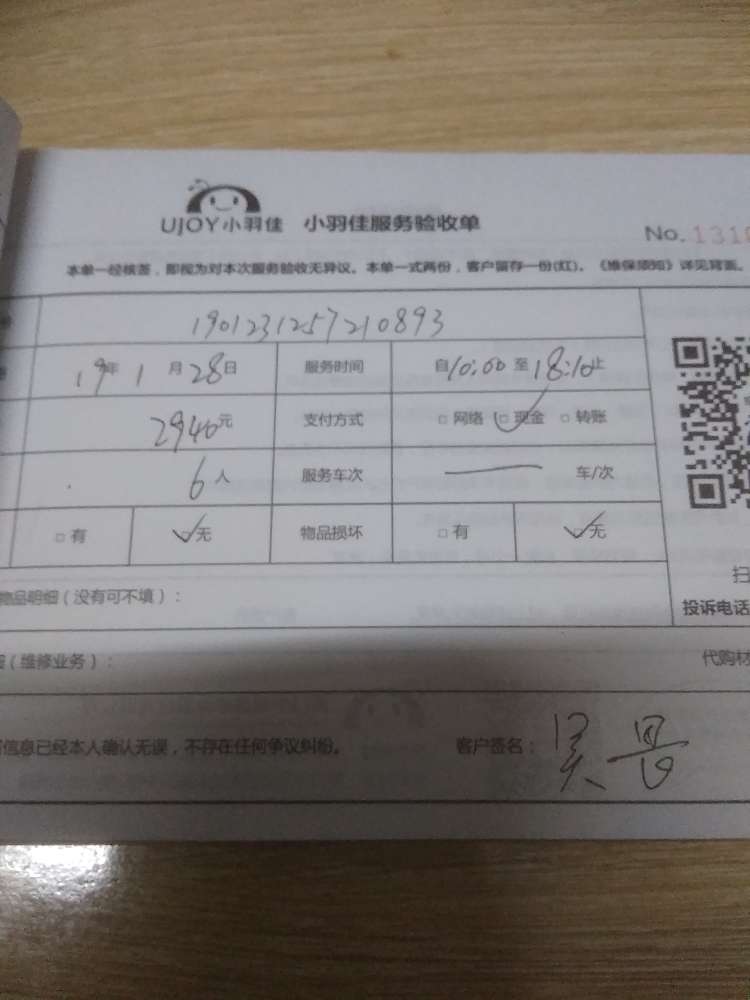 UJOY小羽佳 小羽佳服务验收单
No. 1310
本单一经核签，即视为对本次服务验收无异议。本单一式两份，客户留存一份(红)。《维保须知》详见背面。
1901231257210893
19年1月28日 服务时间 自10:00至18:10止
2940元 支付方式 □网络 □现金 □转账
6人 服务车次 车/次
□有 □无 物品损坏 □有 □无
物品明细（没有可不填）：
扫
投诉电话
（维修业务）：
代购材
信息已经本人确认无误，不存在任何争议纠纷。 客户签名：吴